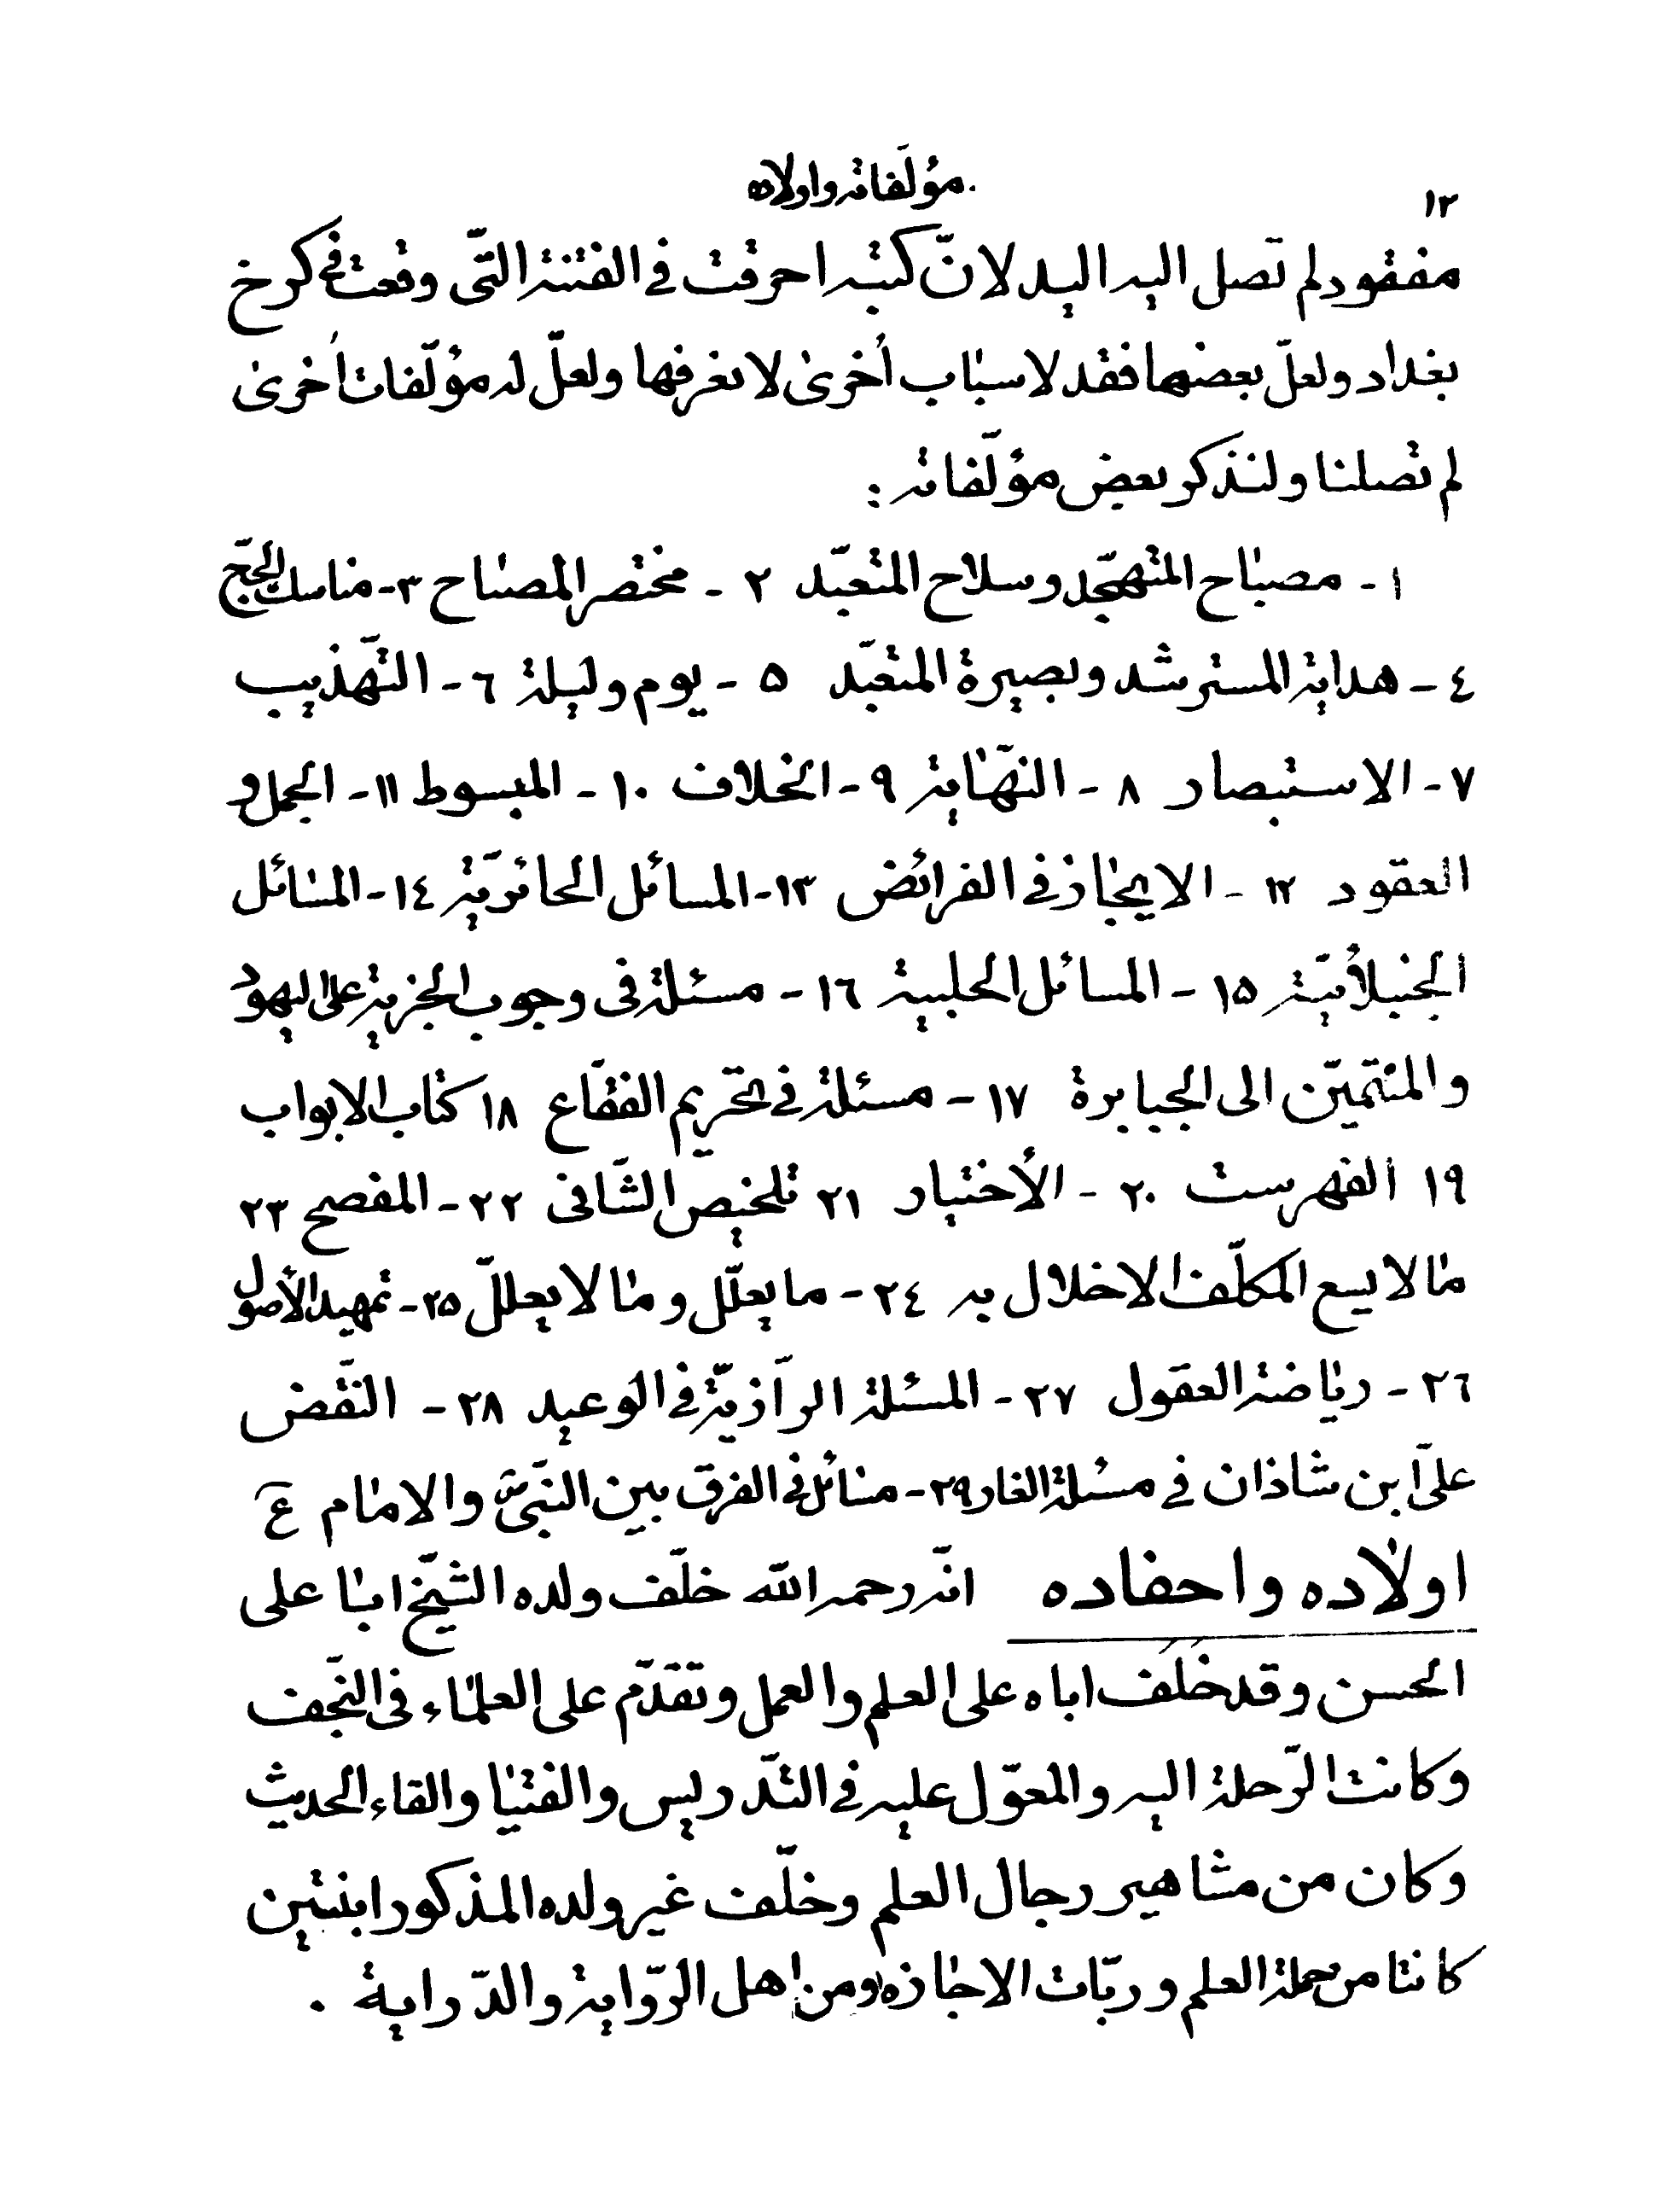 مؤلّفاته واولاده
١٢
مفقود لم تصل اليه اليد لانّ كتبه احرقت في الفتنة الّتي وقعت في كرخ
بغداد ولعلّ بعضها فقد لاسباب أخرى لا نعرفها ولعلّ له مؤلّفات أخرى
لم تصلنا ولنذكر بعض مؤلّفاته :
١ - مصباح المتهجّد وسلاح المتعبّد ٢ - مختصر المصباح ٣ - مناسك الحجّ
٤ - هداية المسترشد وبصيرة المتعبّد ۵ - يوم وليلة ٦ - التّهذيب
٧ - الاستبصار ٨ - النّهاية ٩ - الخلاف ١٠ - المبسوط ١١ - الجمل و
العقود ١٢ - الايجاز في الفرائض ١٣ - المسائل الحائريّة ١٤ - المسائل
الجنبلائيّة ١۵ - المسائل الحلبية ١٦ - مسئلة في وجوب الجزية على اليهود
والمنتمّين الى الجبابرة ١٧ - مسئلة في تحريم الفقّاع ١٨ كتاب الابواب
١٩ الفهرست ٢٠ - الأختيار ٢١ تلخيص الشّافي ٢٢ - المفصح ٢٣
ما لا يسع المكلّف الاخلال به ٢٤ - ما يعلّل وما لا يعللّ ٢۵ - تمهيد الأصول
٢٦ - رياضة العقول ٢٧ - المسئلة الرّازيّة في الوعيد ٢٨ - النّقض
على ابن شاذان في مسئلة الغار ٢٩ - مسائل في الفرق بين النّبيّ والامام ع
اولاده واحفاده انّه رحمه الله خلّف ولده الشّيخ ابا على
الحسن وقد خلَف اباه على العلم والعمل وتقدّم على العلماء في النّجف
وكانت الرّحلة اليه والمعوّل عليه في التّدريس والفتيا والقاء الحديث
وكان من مشاهير رجال العلم وخلّف غير ولده المذكور ابنتين
كانتا من حملة العلم وربّات الاجازه ومن اهل الرّواية والدّراية .